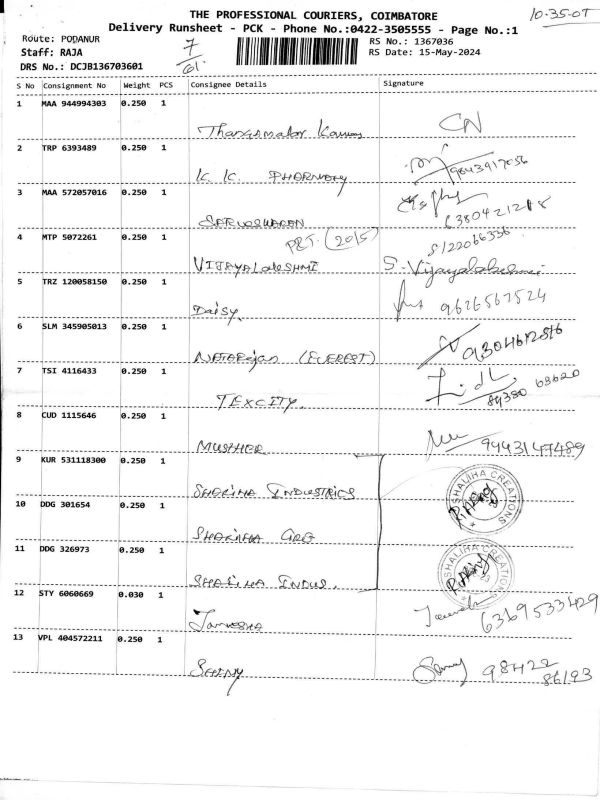 THE PROFESSIONAL COURIERS, COIMBATORE
10-35-OT
Delivery Runsheet - PCK - Phone No.:0422-3505555 - Page No.:1
Route: PODANUR
RS No.: 1367036
Staff: RAJA
7
RS Date: 15-May-2024
DRS No.: DCJB136703601
61
S No Consignment No Weight PCS Consignee Details Signature
1 MAA 944994303 0.250 1
CN
2 TRP 6393489 0.250 1
K. K. PHARMACY
9843917056
3 MAA 572057016 0.250 1
4 MTP 5072261 0.250 1
PET. (2015)
8122066336
VIJAYALAKSHMI S. Vijayalakshmi
5 TRZ 120058150 0.250 1
Daisy. 9626567524
6 SLM 345905013 0.250 1
NATARAJAN (EVEREST)
7 TSI 4116433 0.250 1
TEXCITY.
8 CUD 1115646 0.250 1
9443147489
9 KUR 531118300 0.250 1
SHALIHA CREATIONS
10 DDG 301654 0.250 1
11 DDG 326973 0.250 1
SHALIHA CREATIONS
12 STY 6060669 0.030 1
6369533429
13 VPL 404572211 0.250 1
SHINY
98422
86193